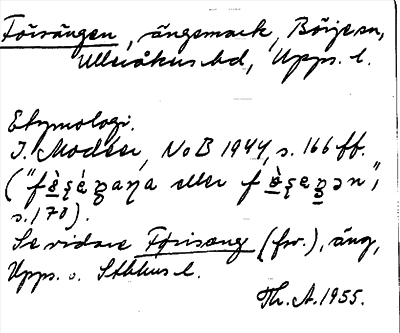 Försängen, ängsmark, Börje sn,
Ulleråkers hd, Upps. l.
Etymologi.
I. Modéer, NoB 1944, s. 166 ff.
eller
s. 170).
Se vidare Förisang (frv.), äng,
Upps. o. Sthlms l.
Th. A. 1955.